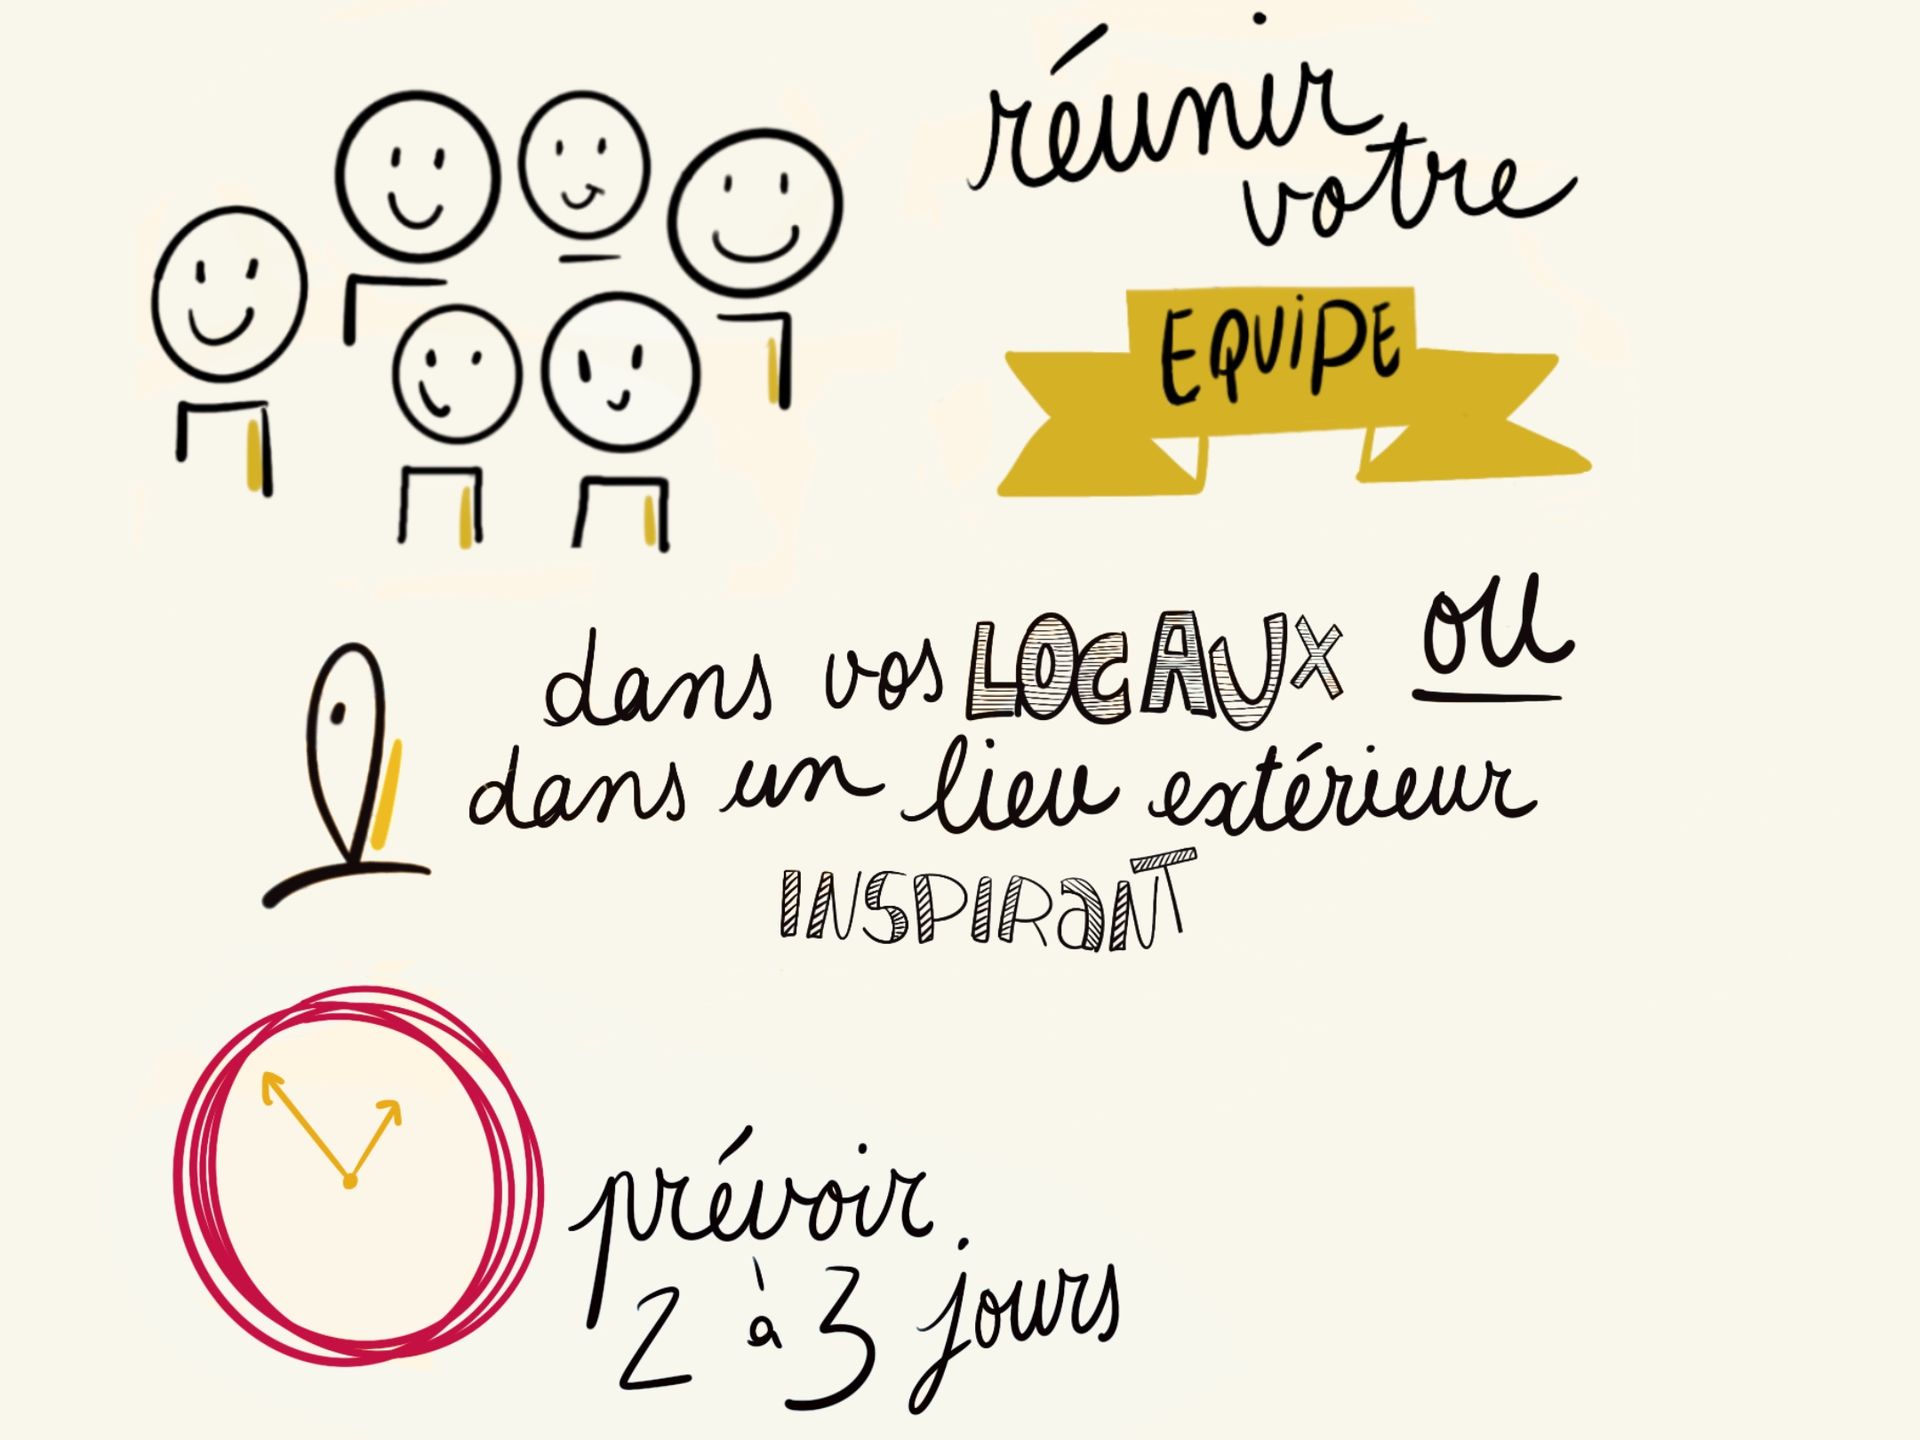 réunir
votre
EQUIPE
dans vos LOCAUX ou
dans un lieu extérieur
INSPIRANT
prévoir
2 à 3 jours